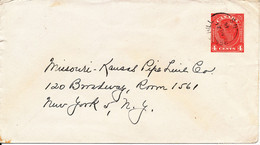 CANADA
4 4
CENTS
Missouri-Kansas Pipe Line Co.
120 Broadway, Room 1561
New York 5, N.Y.